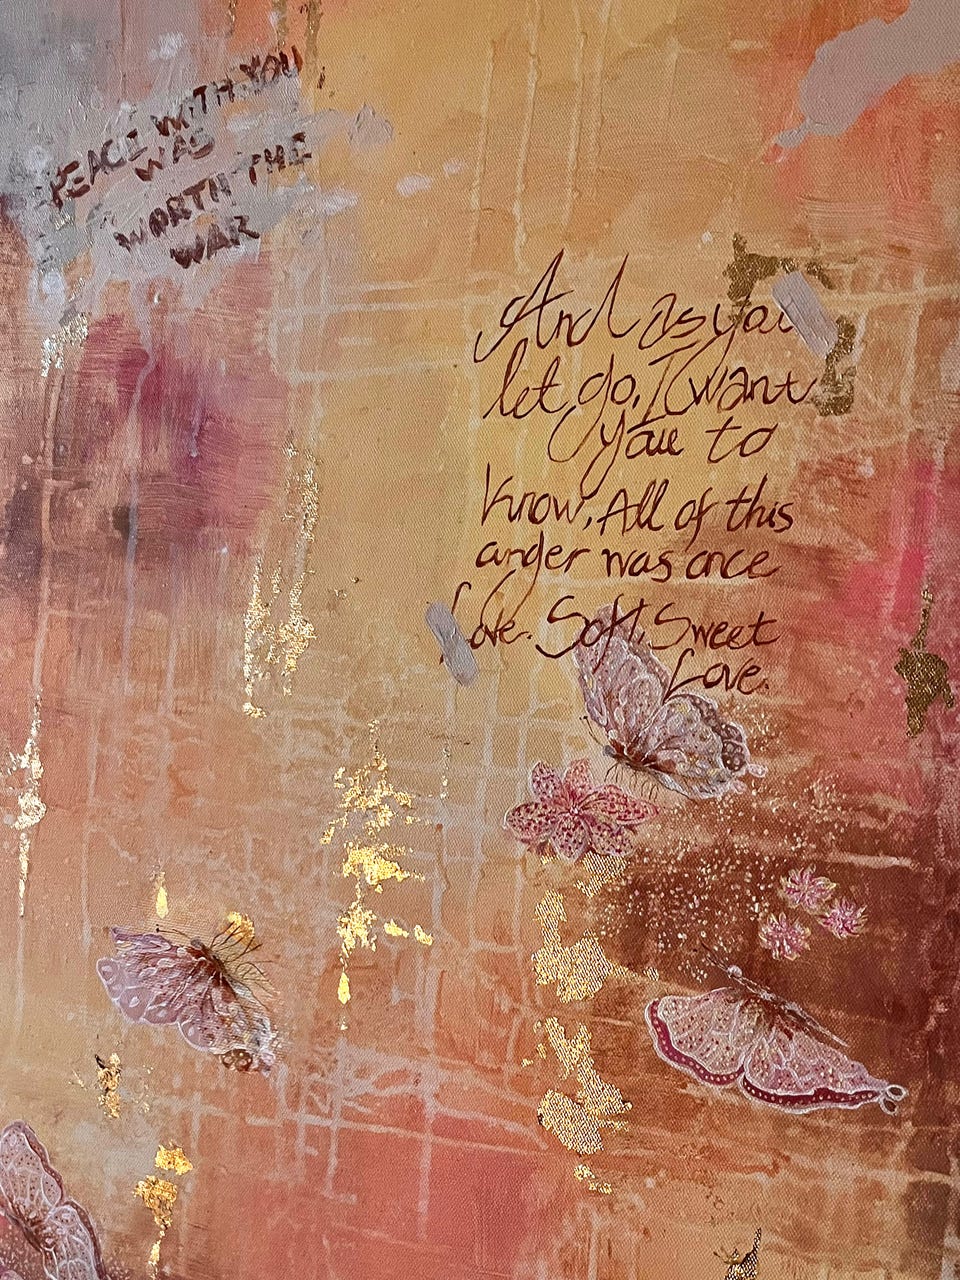 PEACE WITH YOU
WAS
WORTH THE
WAR
And as you
let go, I want
you to
know, All of this
anger was once
Love. Soft, Sweet
Love.